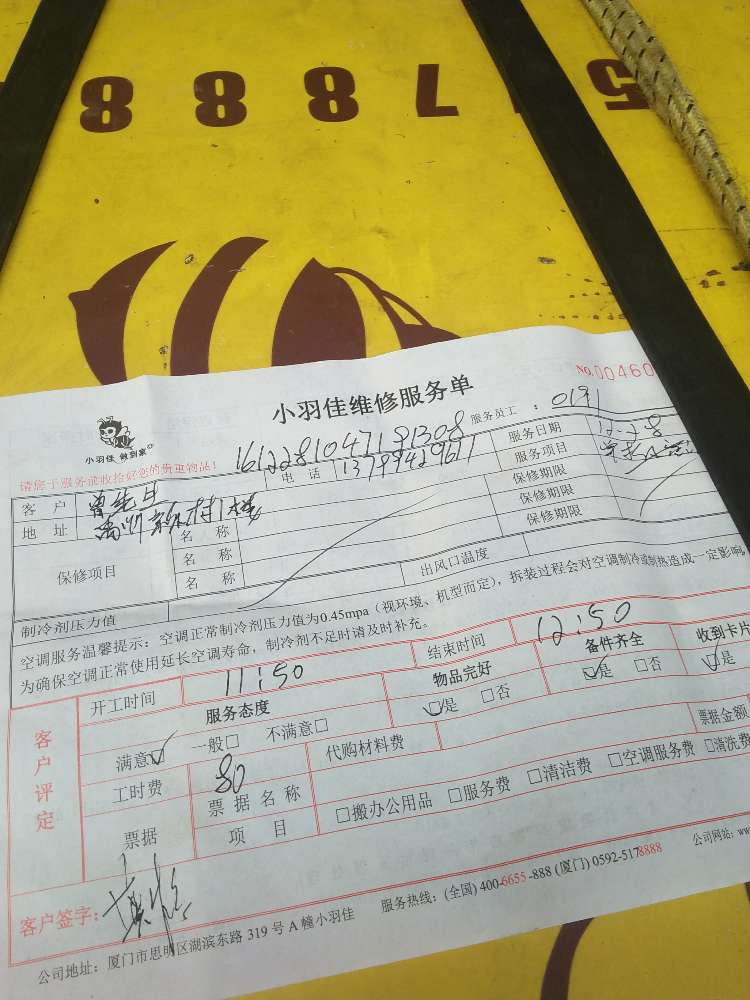 5 788
小羽佳维修服务单
NO.00460
小羽佳 做到家
请您于服务前收拾好您的贵重物品!
1612281047191308
服务员工: 0191
客户 曾先生 电话 13799429617 服务日期 12-28
地址 禹州新村1楼 服务项目
保修项目 名称 保修期限
名称 保修期限
名称 保修期限
制冷剂压力值 出风口温度
空调服务温馨提示:空调正常制冷剂压力值为0.45mpa(视环境、机型而定),拆装过程会对空调制冷或制热造成一定影响
为确保空调正常使用延长空调寿命,制冷剂不足时请及时补充。
客户评定
开工时间 11:50 结束时间 12:50
服务态度 物品完好 备件齐全 收到卡片
满意☑ 一般□ 不满意□ ☑是 □否 ☑是 □否 ☑是
工时费 80 代购材料费
票据 票据名称 票据金额
项目 □搬办公用品 □服务费 □清洁费 □空调服务费 □清洗费
客户签字:
公司地址:厦门市思明区湖滨东路 319 号 A 幢小羽佳 服务热线:(全国) 400-6655-888 (厦门) 0592-5178888 公司网站:ww